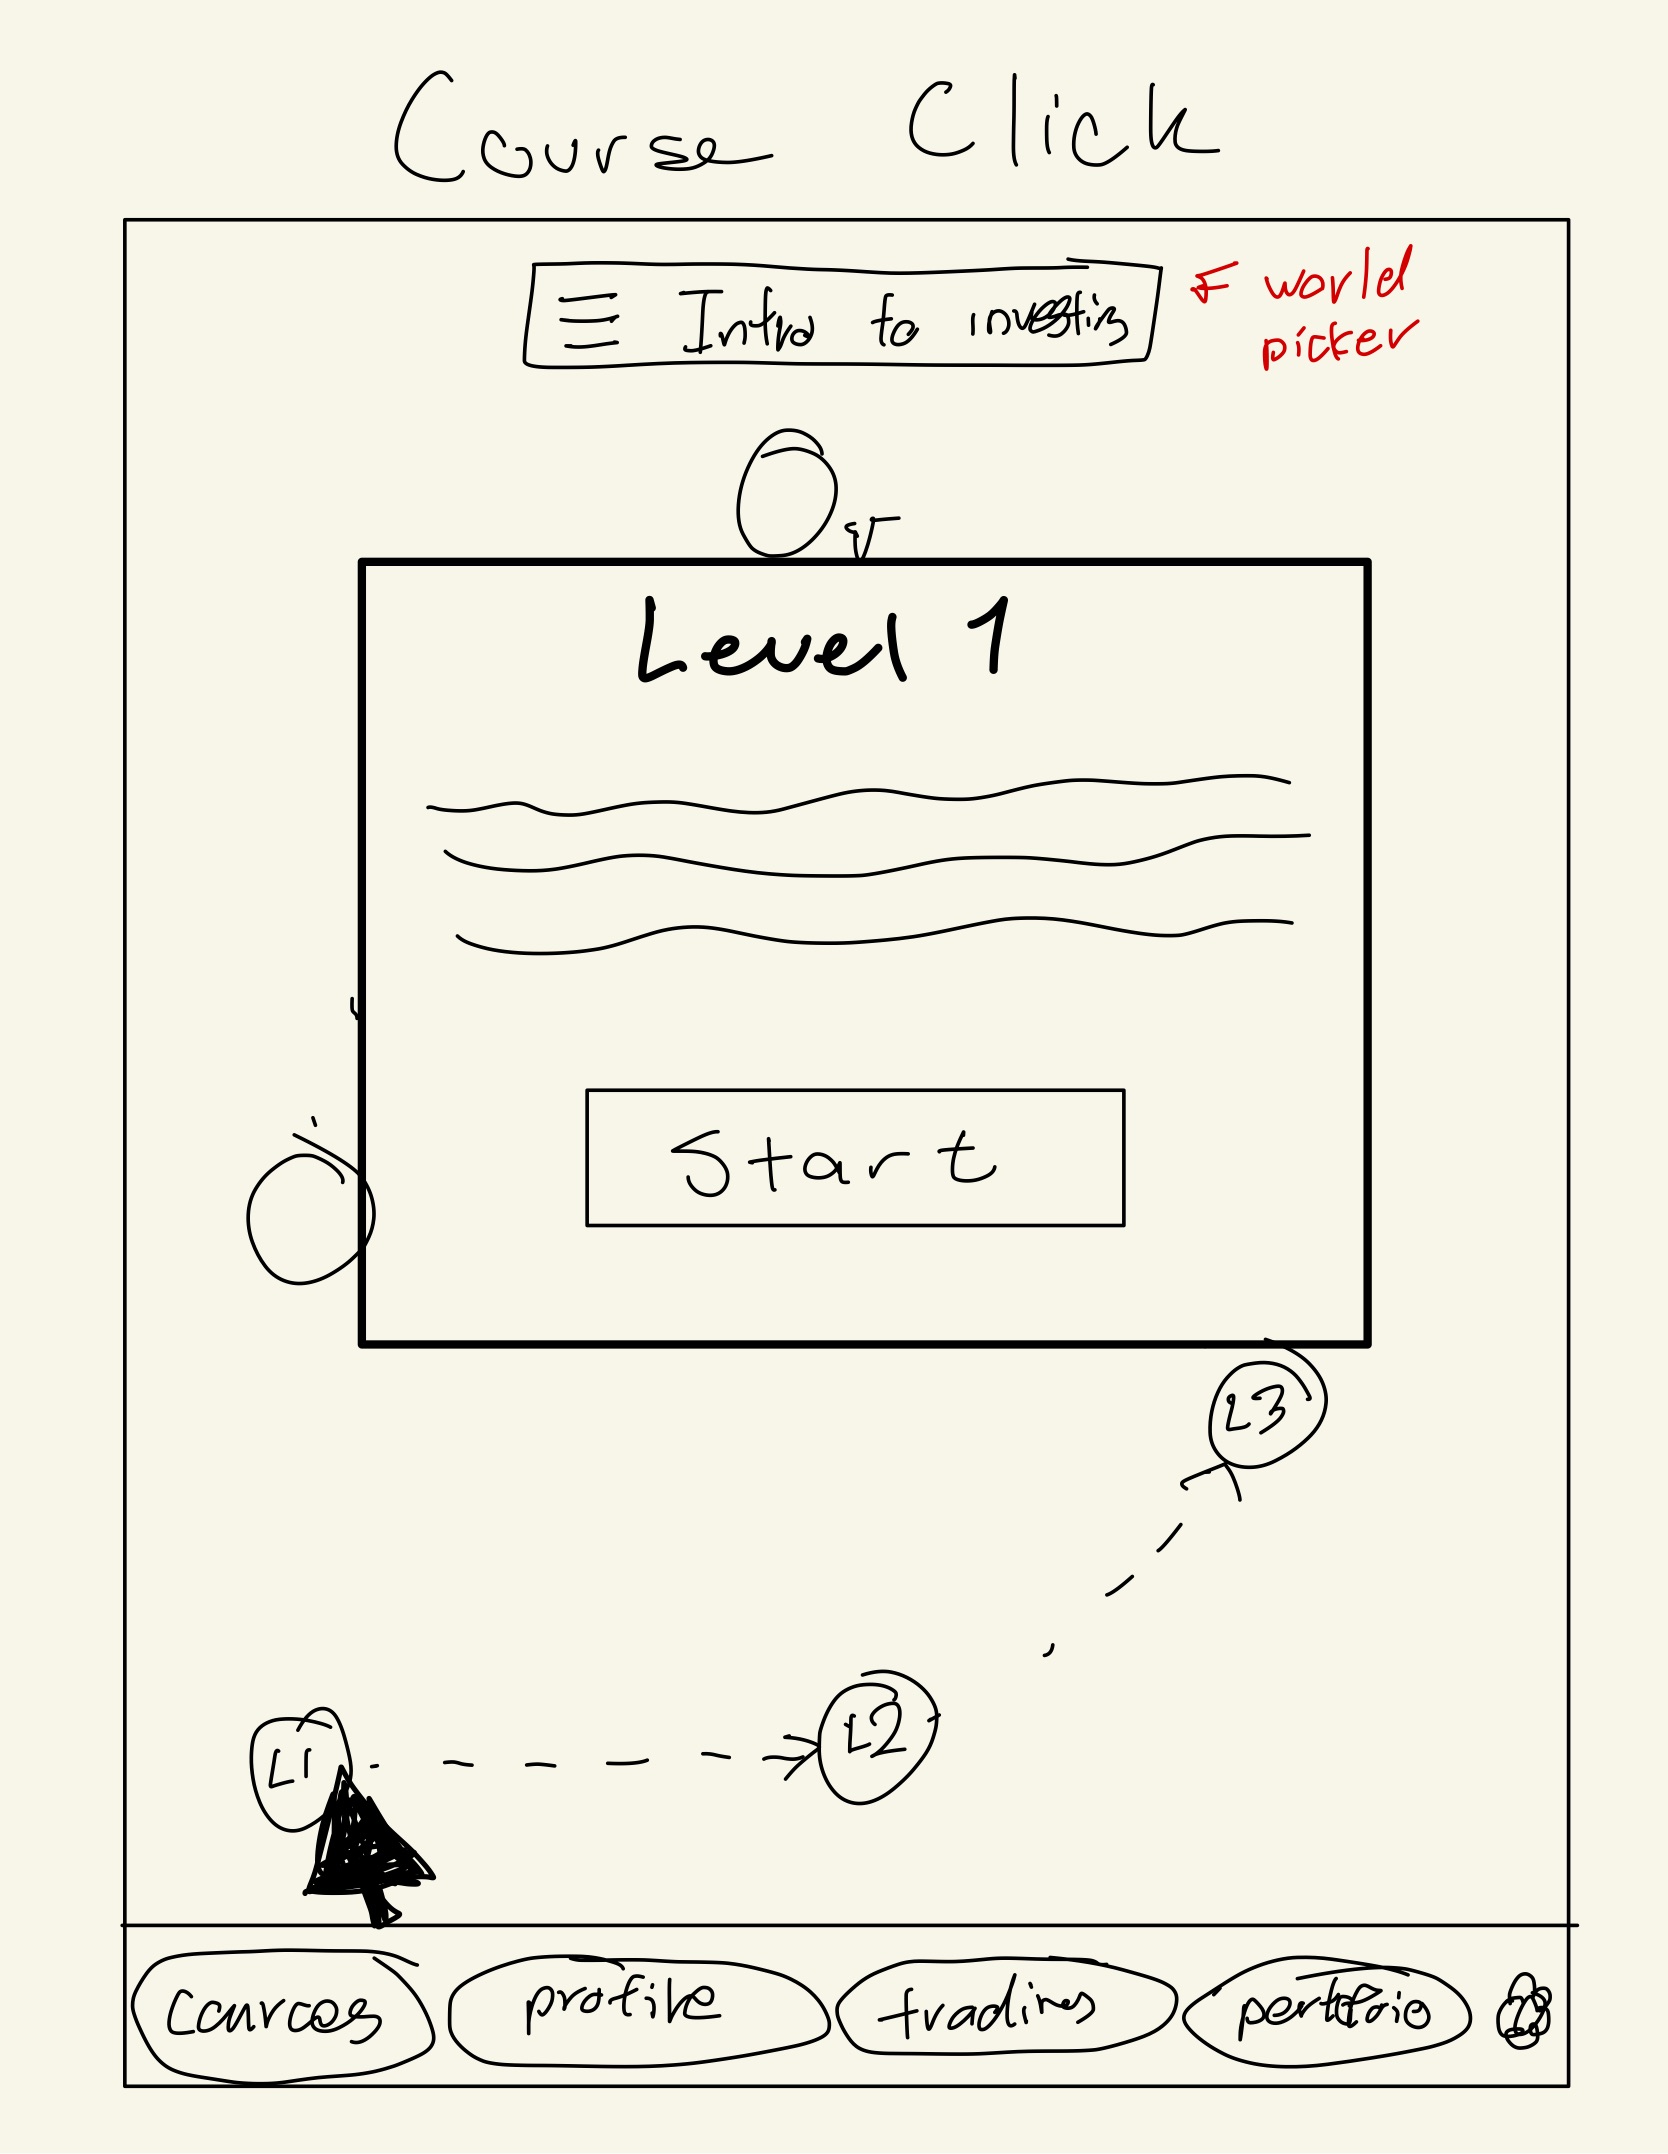 Course Click
Intro to investing
world
picker
Level 1
Start
L3
L2
L1
profile
trading